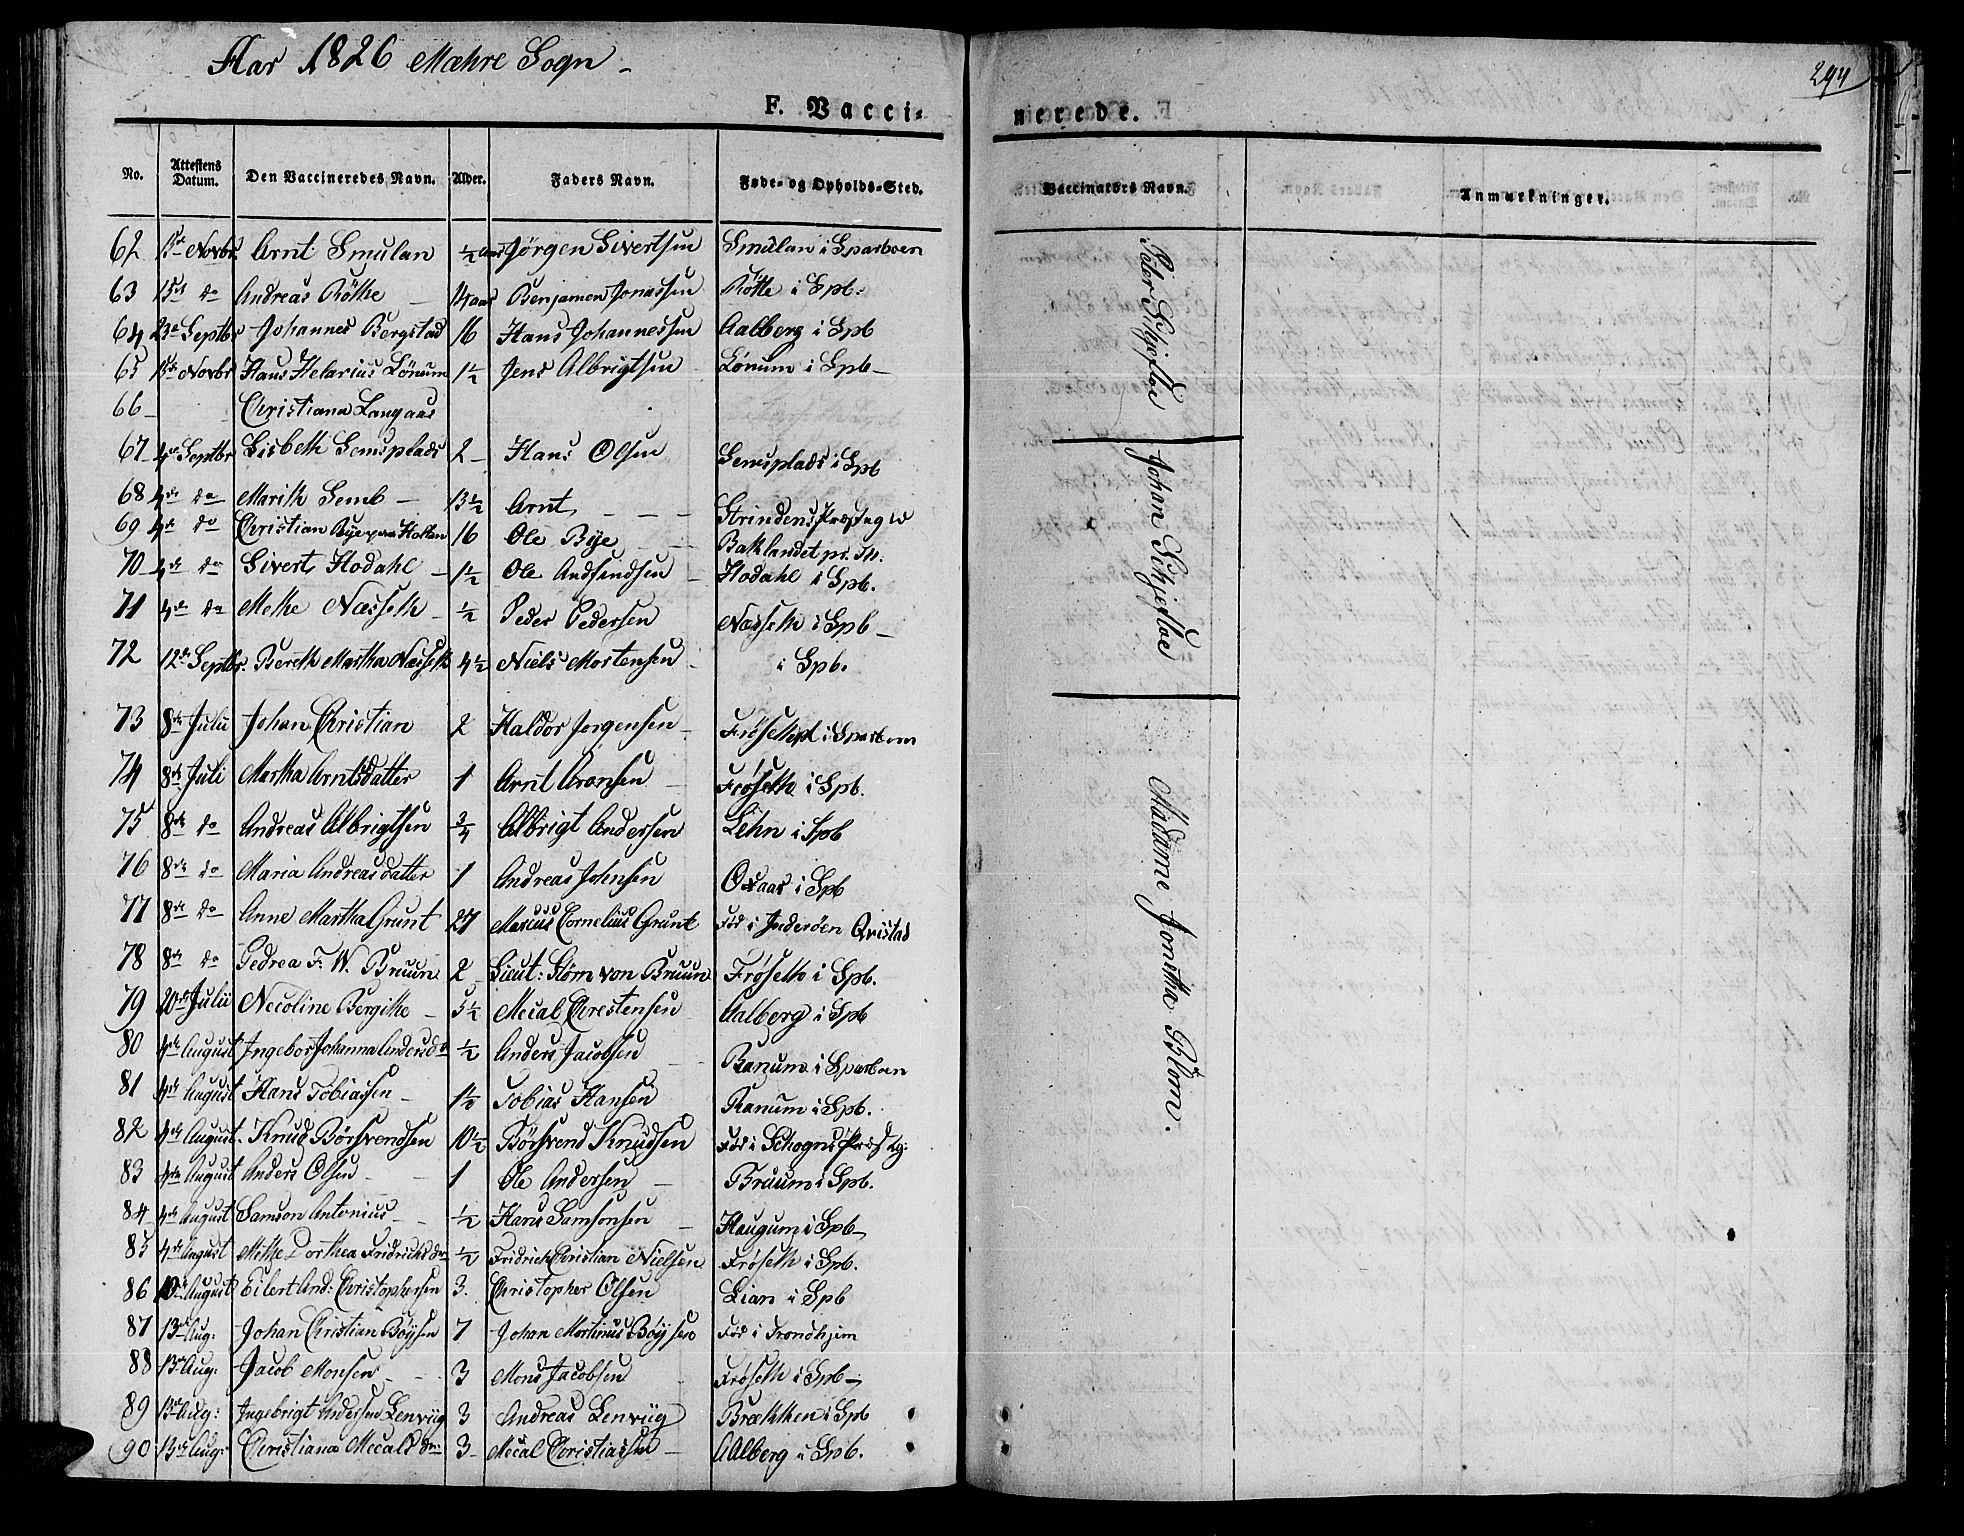 Aar 1826 Mæhre Sogn
294
F. Vacci=
nerede.
No. Attestens Datum. Den Vaccineredes Navn. Alder. Faders Navn. Føde- og Opholds-Sted. Vaccinators Navn. Anmærkninger.
62 15de Novbr Arnt Smulan ½ Aar Jørgen Sivertsen Smulan i Sparboen
63 15de do Andreas Røthe 14 aar Benjamen Jonassen Røtte i Spb:
64 23de Septbr Johannes Bergstad 16 Hans Johannessen Aalberg i Spb
65 15de Novbr Hans Helarius Lønum 1½ Jens Albrigtsen Lønum i Spb
66 Christiana Langaas
67 4de Septbr Lisbeth Semsplads 2 Hans Olsen Semsplads i Spb
68 4de do Marith Semb 13½ Arnt Strindens Præstegld
69 4de do Christian Bye 16 Ole Bye Baklandet pr. Th:
70 4de do Sivert Hodahl 1½ Ole Hodahl i Spb.
71 4de do Methe Næsseth ½ Peder Pedersen Næsseth i Spb
72 12de Septbr. Bereth Martha Næsseth 4½ Niels Mortensen i Spb.
73 8de Julii Johan Christian 2 Haldor Jørgensen Frøseth i Sparboen
74 8de Juli Martha Arntsdatter 1 Arnt Aronsen Frøseth i Spb.
75 8de do Andreas Albrigtsen ¾ Albrigt Andersen Lehn i Spb
76 8de do Maria Andreasdatter 1 Andreas Johnsen Oxaas i Spb
77 8de do Anne Martha Grunt 27 Marcus Cornelius Grunt Fød i Inderøen Qvistad
78 8de do Pedrea F. W. Bruun 2 Lieut: Støm von Bruun Frøseth i Spb.
79 20de Julii Necoline Bergithe 5½ Mecal Chrestensen Aalberg i Spb
80 4de August Ingebor Johanna Andersdr ½ Anders Jacobsen Ranum i Sparboen
81 4de August Hans Tobiassen 1½ Tobias Hansen Ranum i Spb.
82 4de August. Knud Børsvendsen 10½ Børsvend Knudsen Fød i Schogns Præstg:
83 4de August Anders Olsen 1 Ole Andersen Bruum i Spb.
84 4de August Samson Antonius ½ Hans Samsonsen Haugum i Spb
85 4de August Methe Dorthea Fridrichsdr ½ Fridrich Christian Nielsen Frøseth i Spb.
86 10de August Eilert And: Christophersen 3. Christopher Olsen Lian i Spb
87 13de Aug. Johan Christian Bøysen 7 Johan Mortinus Bøysen Fød i Trondhjem
88 13de Aug. Jacob Monsen 3 Mons Jacobsen Frøseth i Spb
89 13de Aug: Ingebrigt Andersen Lenvüg 3 Andreas Lenvüg Brækken i Spb
90 13de Aug: Christiana Mecalsdr: 3 Mecal Christiassen Aalberg i Spb.
Peter Schjefloe
Johan Schjefloe
Madame Jonetha Blom.